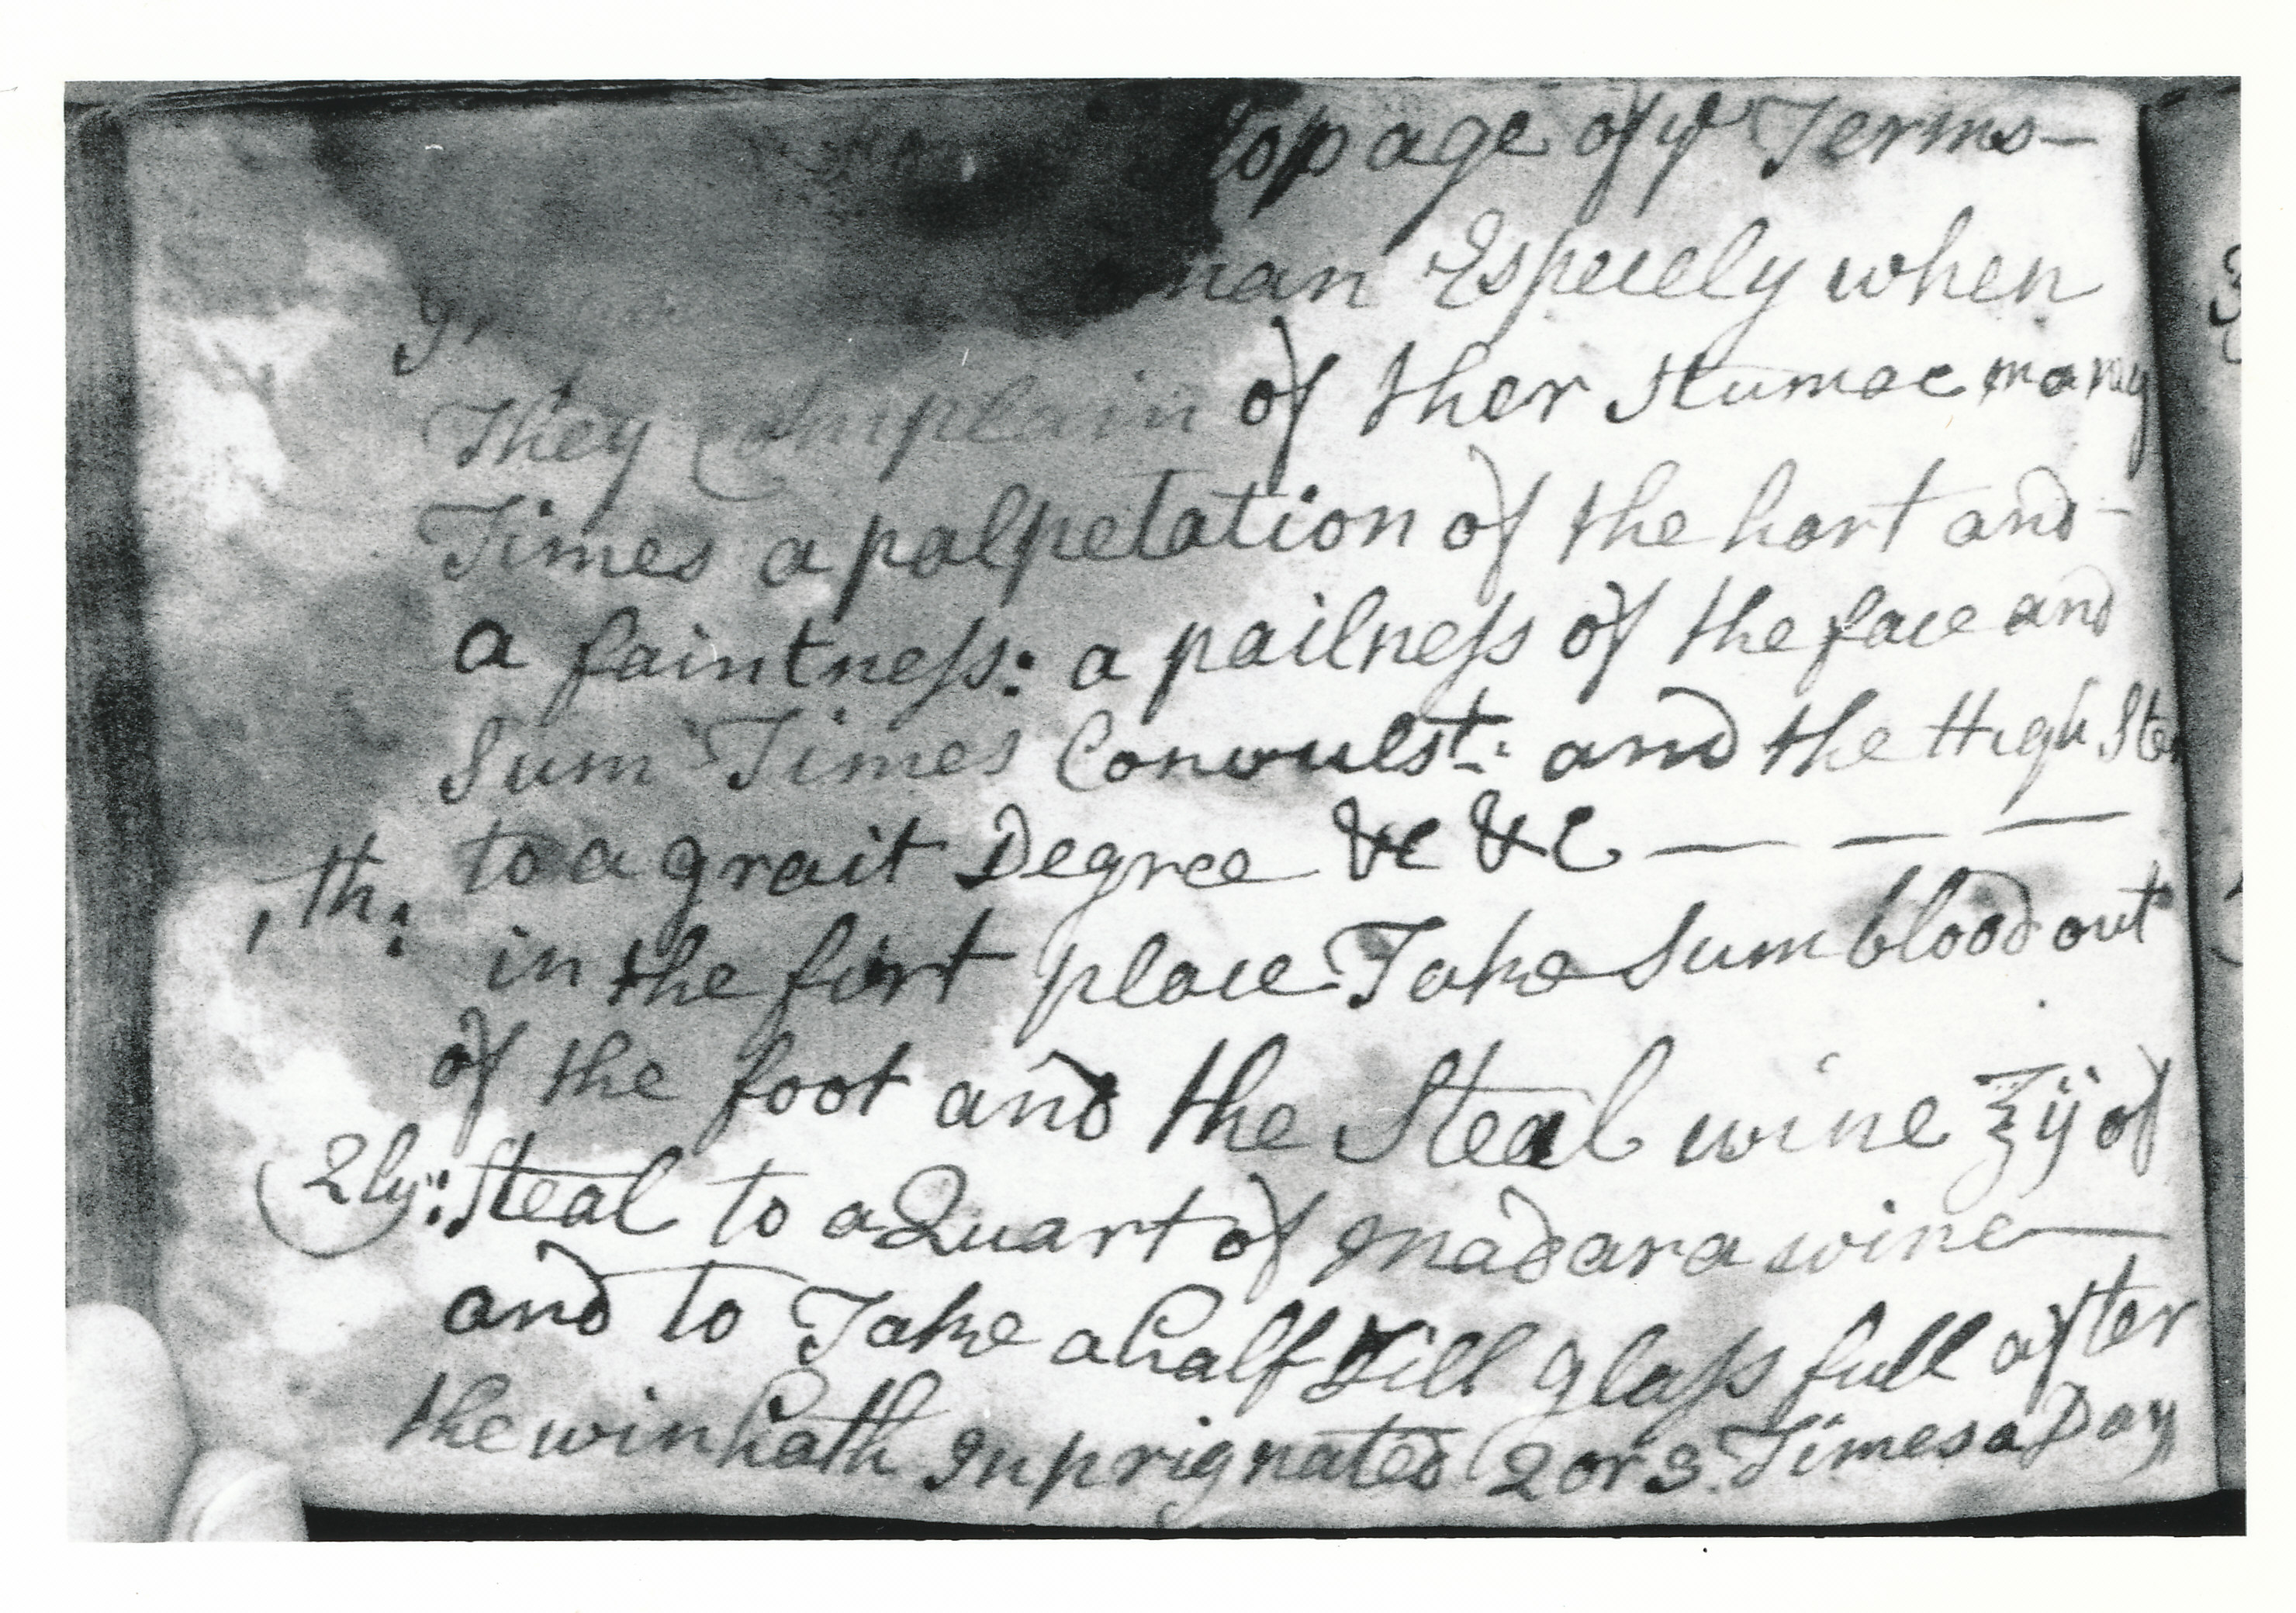 topage of ye Terms—
Espucely when
They Complain of ther Stumac many
Times a palpetation of the hart and-
a faintness: a pailness of the face and
Sum Times Convulst: and the High Ste
, th: to a grait Degree &c &c — — —
in the first place Take Sum blood out
of the foot and the Steal wine ℥ij of
2ly: Steal to a Quart of madara wine—
and to Take a half Jill glass full after
the win hath Inprignated 2 or 3 Times a Day